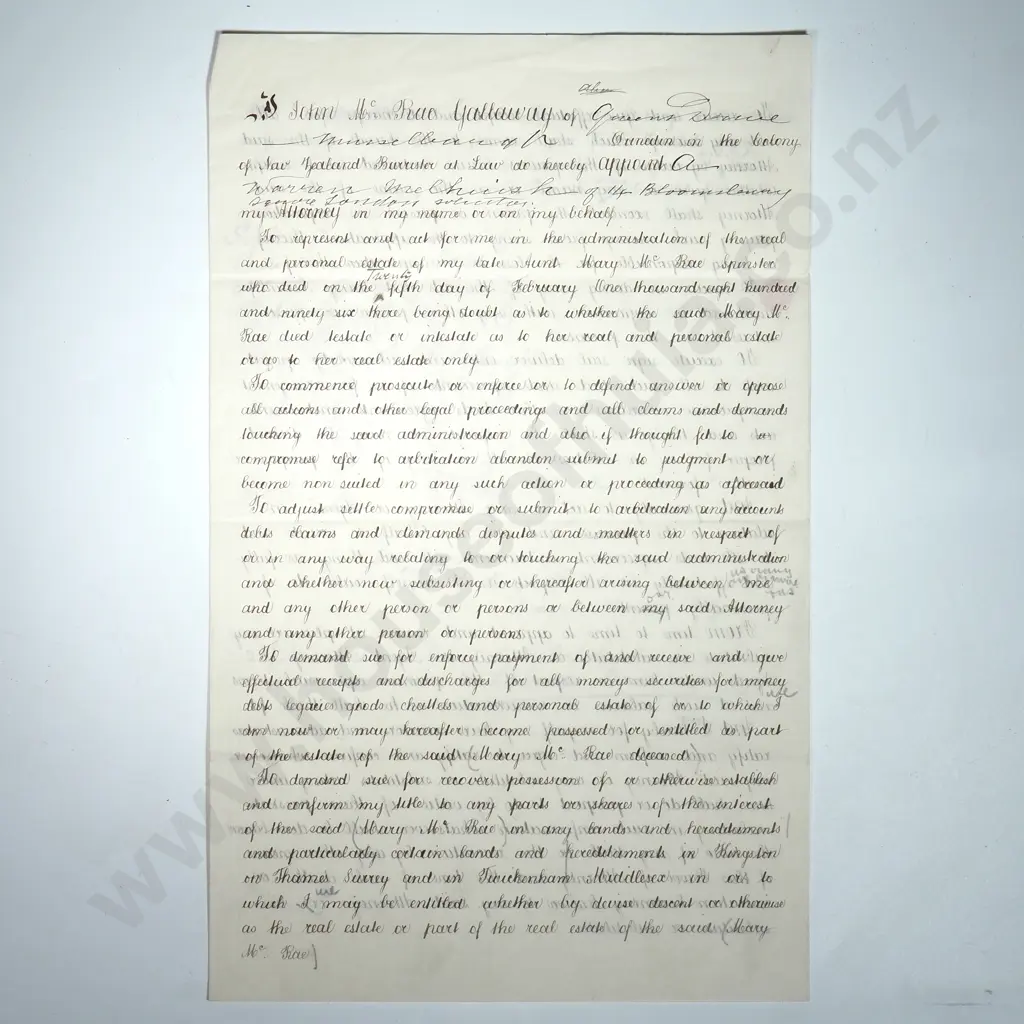 I John Mc. Rae Gallaway of
Dunedin in the Colony
of New Zealand Barrister at Law do hereby appoint A
Warren of 14 Bloomsbury
Square London solicitor
my Attorney in my name or on my behalf
To represent and act for me in the administration of the real
and personal estate of my late Aunt Mary Mc. Rae Spinster
Twenty
who died on the fifth day of February One thousand eight hundred
and ninety six there being doubt as to whether the said Mary Mc.
Rae died testate or intestate as to her real and personal estate
or as to her real estate only
To commence prosecute or enforce or to defend answer or oppose
all actions and other legal proceedings and all claims and demands
touching the said administration and also if thought fit to
compromise refer to arbitration abandon submit to judgment or
become non suited in any such action or proceeding as aforesaid
To adjust settle compromise or submit to arbitration any accounts
debts claims and demands disputes and matters in respect of
or in any way relating to or touching the said administration
and whether now subsisting or hereafter arising between me
and any other person or persons or between my said Attorney
and any other person or persons
To demand sue for enforce payment of and receive and give
effectual receipts and discharges for all moneys securities for money
debts legacies goods chattels and personal estate of or to which I
am now or may hereafter become possessed or entitled as part
of the estate of the said (Mary Mc. Rae deceased)
To demand sue for recover possession of or otherwise establish
and confirm my title to any parts or shares of the interest
of the said (Mary Mc. Rae) on any lands and hereditaments
and particularly certain lands and hereditaments in Kingston
on Thames Surrey and in Twickenham Middlesex in or to
we
which I may be entitled whether by devise descent or otherwise
as the real estate or part of the real estate of the said (Mary
Mc. Rae)
www.houseofhulia.co.nz